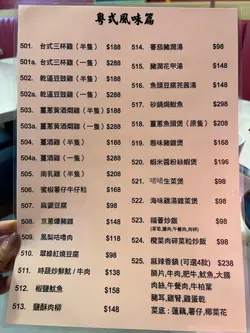 粵式風味篇
501. 台式三杯雞（半隻） $188
501a. 台式三杯雞（一隻） $288
502. 乾逼豆豉雞（半隻） $188
502a. 乾逼豆豉雞（一隻） $288
503. 薑蔥黃酒焗雞（半隻） $188
503a. 薑蔥黃酒焗雞（一隻） $288
504. 薑酒雞（半隻） $188
504a. 薑酒雞（一隻） $288
505. 南乳雞（半隻） $208
506. 蜜椒薯仔牛仔粒 $168
507. 麻婆豆腐 $98
508. 京蔥爆豬膶 $98
509. 鳳梨咕嚕肉 $118
510. 翠綠紅燒豆腐 $98
511. 時蔬炒鮮魷 / 牛肉 $138
512. 椒鹽魷魚 $158
513. 鹽酥肉柳 $148
514. 番茄豬潤湯 $98
515. 豬潤花甲湯 $148
516. 魚頭豆腐芫茜湯 $168
517. 砂鍋焗鮫魚 $298
518. 薑蔥魚頭煲（原隻） $288
519. 蔥味雞雜煲 $168
520. 蝦米醬粉絲蝦煲 $168
521. 啫啫生菜煲 $98
522. 海味雞湯雜菜煲 $168
523. 福蓉炒飯 $98
524. 欖菜肉碎菜粒炒飯 $98
525. 麻辣香鍋（可選4款） $238
腸片,牛肉,肥牛,魷魚,大腸
肉絲,午餐肉,牛柏葉
豬耳,雞腎,雞蛋乾
菜底：蓮藕,薯仔,椰菜花